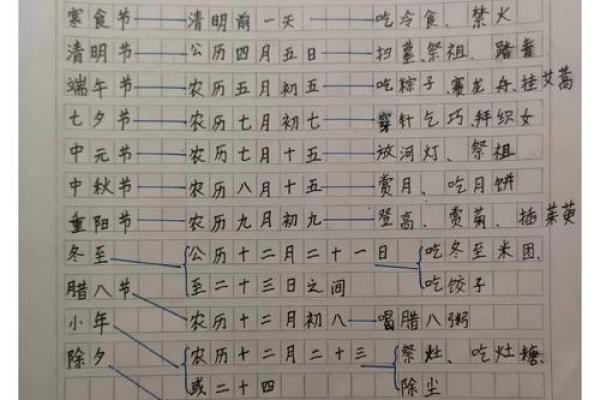 寒食节——清明前一天——吃冷食、禁火
清明节——公历四月五日——扫墓、祭祖、踏青
端午节——农历五月初五——吃粽子、赛龙舟、挂艾蒿
七夕节——农历七月初七——穿针乞巧、拜织女
中元节——农历七月十五——放河灯、祭祖
中秋节——农历八月十五——赏月、吃月饼
重阳节——农历九月初九——登高、赏菊、插茱萸
冬至 公历十二月二十一日 吃冬至米团、
至二十三日之间 吃饺子
腊八节
小年 农历十二月初八——喝腊八粥
除夕 农历十二月二十三 祭灶、吃灶糖、
或二十四 除尘